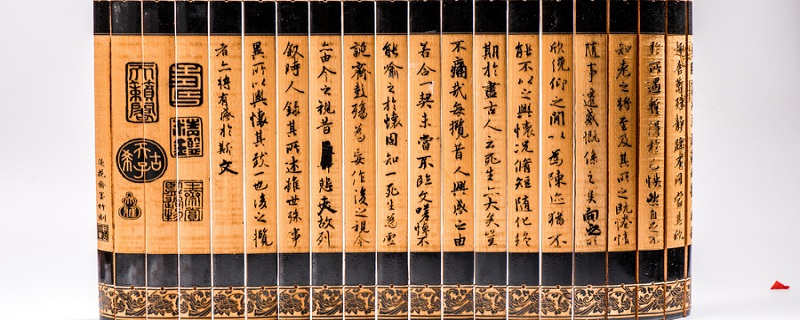 趣舍萬殊靜躁不同當其欣
於所遇暫得於己快然自足不
知老之將至及其所之既惓情
隨事遷感慨係之矣向之所
欣俛仰之間以為陳迹猶不
能不以之興懷況脩短隨化終
期於盡古人云死生亦大矣豈
不痛哉每攬昔人興感之由
若合一契未嘗不臨文嗟悼不
能喻之於懷固知一死生為虛
誕齊彭殤為妄作後之視今
亦由今之視昔悲夫故列
叙時人錄其所述雖世殊事
異所以興懷其致一也後之攬
者亦將有感於斯文